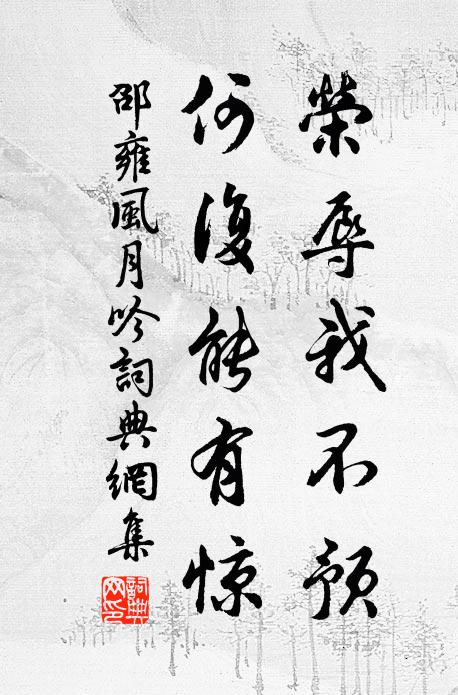 榮辱我不預
何復能有惊
邵雍風月吟詞典網集
詞典
女印